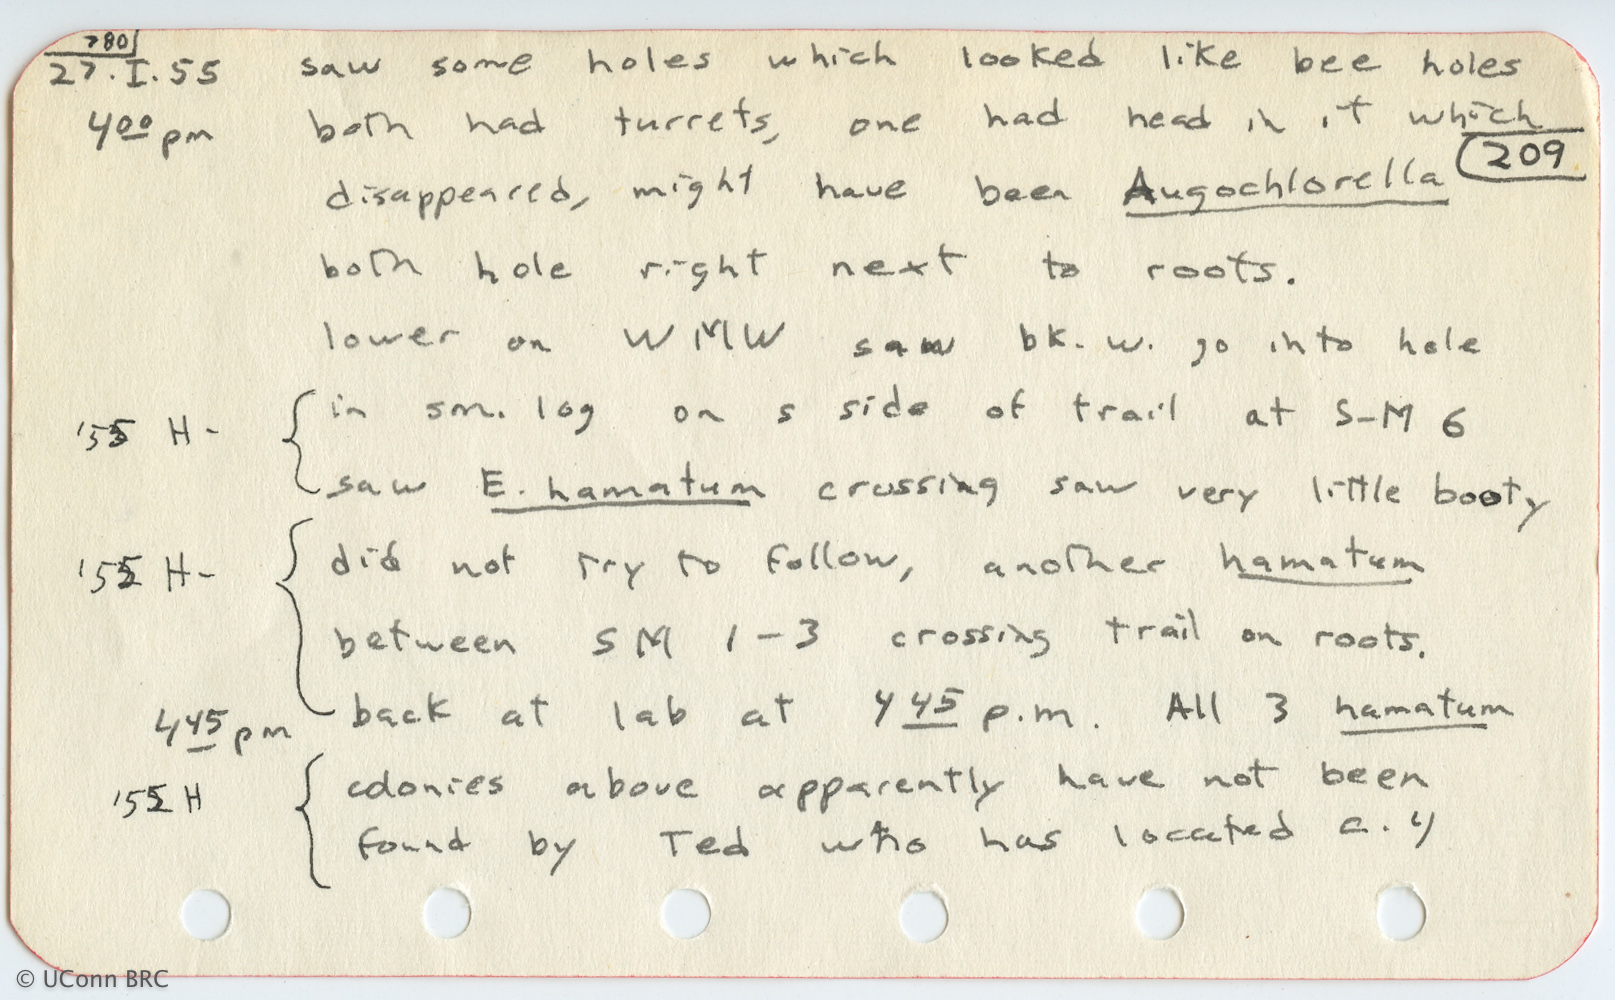 780
27.I.55 saw some holes which looked like bee holes
4 00 pm both had turrets, one had head in it which
209
disappeared, might have been Augochlorella
both hole right next to roots.
lower on WMW saw bk. w. go into hole
'55 H- in sm. log on s side of trail at S-M 6
saw E. hamatum crossing saw very little booty
'55 H- did not try to follow, another hamatum
between SM 1-3 crossing trail on roots.
4 45 pm back at lab at 4 45 p.m. All 3 hamatum
'55 H colonies above apparently have not been
found by Ted who has located c. 4
© UConn BRC